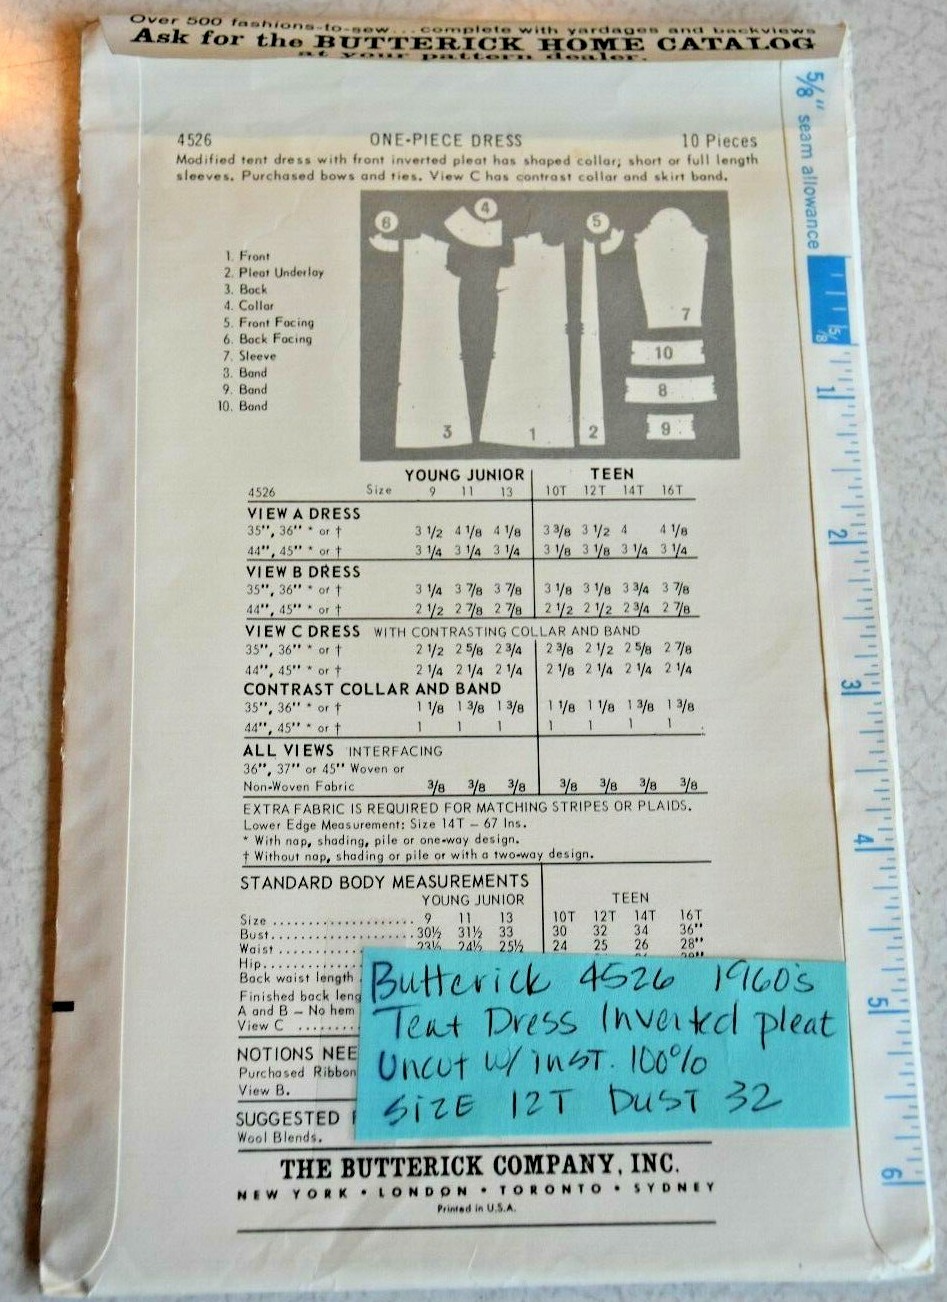 Over 500 fashions-to-sew...complete with yardages and backviews
Ask for the BUTTERICK HOME CATALOG
at your pattern dealer.
5/8" seam allowance
4526 ONE-PIECE DRESS 10 Pieces
Modified tent dress with front inverted pleat has shaped collar; short or full length
sleeves. Purchased bows and ties. View C has contrast collar and skirt band.
1. Front
2. Pleat Underlay
3. Back
4. Collar
5. Front Facing
6. Back Facing
7. Sleeve
8. Band
9. Band
10. Band
6 4 5
7
10
8
9
3 1 2
YOUNG JUNIOR TEEN
4526 Size 9 11 13 10T 12T 14T 16T
VIEW A DRESS
35", 36" * or † 3 1/2 4 1/8 4 1/8 3 3/8 3 1/2 4 4 1/8
44", 45" * or † 3 1/4 3 1/4 3 1/4 3 1/8 3 1/8 3 1/4 3 1/4
VIEW B DRESS
35", 36" * or † 3 1/4 3 7/8 3 7/8 3 1/8 3 1/8 3 3/4 3 7/8
44", 45" * or † 2 1/2 2 7/8 2 7/8 2 1/2 2 1/2 2 3/4 2 7/8
VIEW C DRESS WITH CONTRASTING COLLAR AND BAND
35", 36" * or † 2 1/2 2 5/8 2 3/4 2 3/8 2 1/2 2 5/8 2 7/8
44", 45" * or † 2 1/4 2 1/4 2 1/4 2 1/8 2 1/4 2 1/4 2 1/4
CONTRAST COLLAR AND BAND
35", 36" * or † 1 1/8 1 3/8 1 3/8 1 1/8 1 1/8 1 3/8 1 3/8
44", 45" * or † 1 1 1 1 1 1 1
ALL VIEWS INTERFACING
36", 37" or 45" Woven or
Non-Woven Fabric 3/8 3/8 3/8 3/8 3/8 3/8 3/8
EXTRA FABRIC IS REQUIRED FOR MATCHING STRIPES OR PLAIDS.
Lower Edge Measurement: Size 14T – 67 Ins.
* With nap, shading, pile or one-way design.
† Without nap, shading or pile or with a two-way design.
STANDARD BODY MEASUREMENTS
YOUNG JUNIOR TEEN
Size .................. 9 11 13 10T 12T 14T 16T
Bust.................. 30½ 31½ 33 30 32 34 36"
Waist ................ 23½ 24½ 25½ 24 25 26 28"
Hip............
Back waist length
Finished back leng
A and B – No hem
View C ........
NOTIONS NEE
Purchased Ribbon
View B.
SUGGESTED
Wool Blends.
Butterick 4526 1960's
Tent Dress Inverted pleat
Uncut w/ inst. 100%
SIZE 12T Bust 32
THE BUTTERICK COMPANY, INC.
NEW YORK • LONDON • TORONTO • SYDNEY
Printed in U.S.A.
5/8
1
2
3
4
5
6